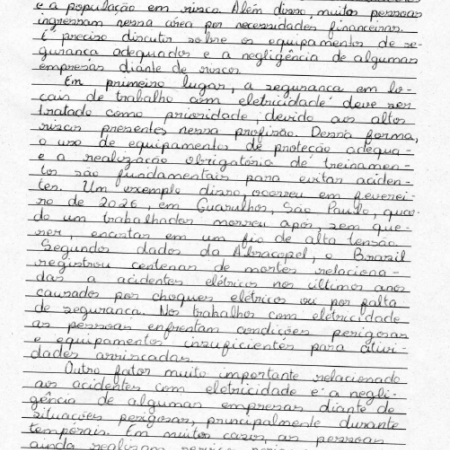 e a população em risco. Além disso, muitas pessoas
ingressam nessa área por necessidades financeiras.
É preciso discutir sobre os equipamentos de se-
gurança adequados e a negligência de algumas
empresas diante de riscos.
Em primeiro lugar, a segurança em lo-
cais de trabalho com eletricidade deve ser
tratada como prioridade, devido aos altos
riscos presentes nessa profissão. Dessa forma,
o uso de equipamentos de proteção adequa-
e a realização obrigatória de treinamen-
tos são fundamentais para evitar aciden-
tes. Um exemplo disso, ocorreu em feverei-
ro de 2026, em Guarulhos, São Paulo, quan-
do um trabalhador morreu após, sem que-
rer, encostar em um fio de alta tensão.
Segundo dados da Abracopel, o Brasil
registrou centenas de mortes relaciona-
das a acidentes elétricos nos últimos anos
causados por choques elétricos ou por falta
de segurança. Nos trabalhos com eletricidade
as pessoas enfrentam condições perigosas
e equipamentos insuficientes para ativi-
dades arriscadas.
Outro fator muito importante relacionado
aos acidentes com eletricidade é a negli-
gência de algumas empresas diante de
situações perigosas, principalmente durante
temporais. Em muitos casos, as pessoas
ainda realizam serviços